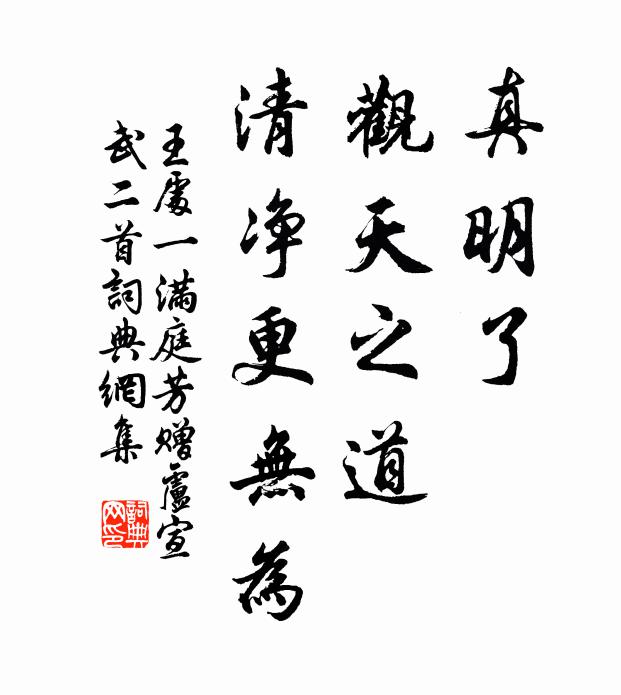 真明了
觀天之道
清净更無為
王處一滿庭芳贈盧宣
武二首詞典網集
詞典
网印